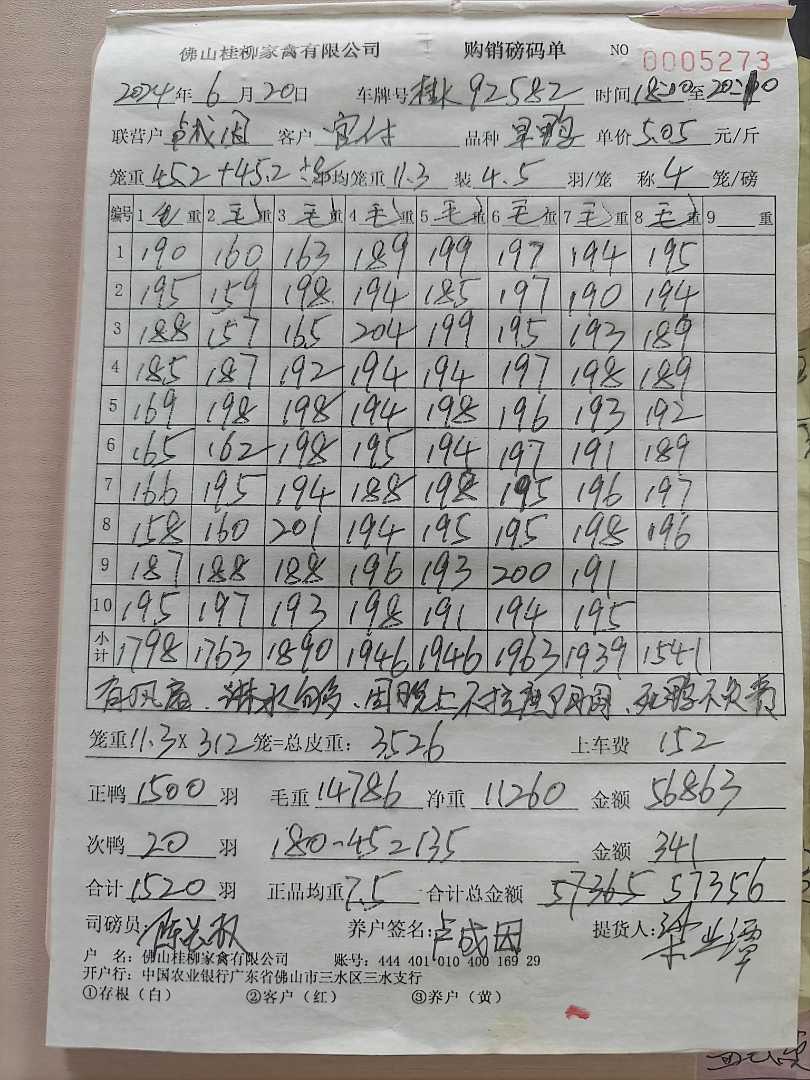 佛山桂柳家禽有限公司 购销磅码单 NO 0005273
2024年6月20日 车牌号桂K92582 时间18:00至20:10
联营户卢成因 客户 品种 单价5.05元/斤
笼重45.2+45.2 平均笼重11.3 装4.5羽/笼 称4笼/磅
编号 1毛重 2毛重 3毛重 4毛重 5毛重 6毛重 7毛重 8毛重 9 重
1 190 160 163 189 199 197 194 195
2 195 159 198 194 185 197 190 194
3 188 157 165 204 199 195 193 189
4 185 187 192 194 194 197 198 189
5 169 198 198 194 198 196 193 192
6 165 162 198 195 194 197 191 189
7 166 195 194 188 198 195 196 197
8 158 160 201 194 195 195 198 196
9 187 188 188 196 193 200 191
10 195 197 193 198 191 194 195
小计 1798 1763 1890 1946 1946 1963 1939 1541
有风 淋水 晚上不 死鸭不负责
笼重11.3×312笼=总皮重:3526 上车费 152
正鸭1500羽 毛重14786 净重11260 金额56863
次鸭20羽 180-45=135 金额341
合计1520羽 正品均重7.5 合计总金额 57365 57356
司磅员: 养户签名:卢成因 提货人:梁业谭
户 名:佛山桂柳家禽有限公司 账号:444 401 010 400 169 29
开户行:中国农业银行广东省佛山市三水区三水支行
①存根(白) ②客户(红) ③养户(黄)